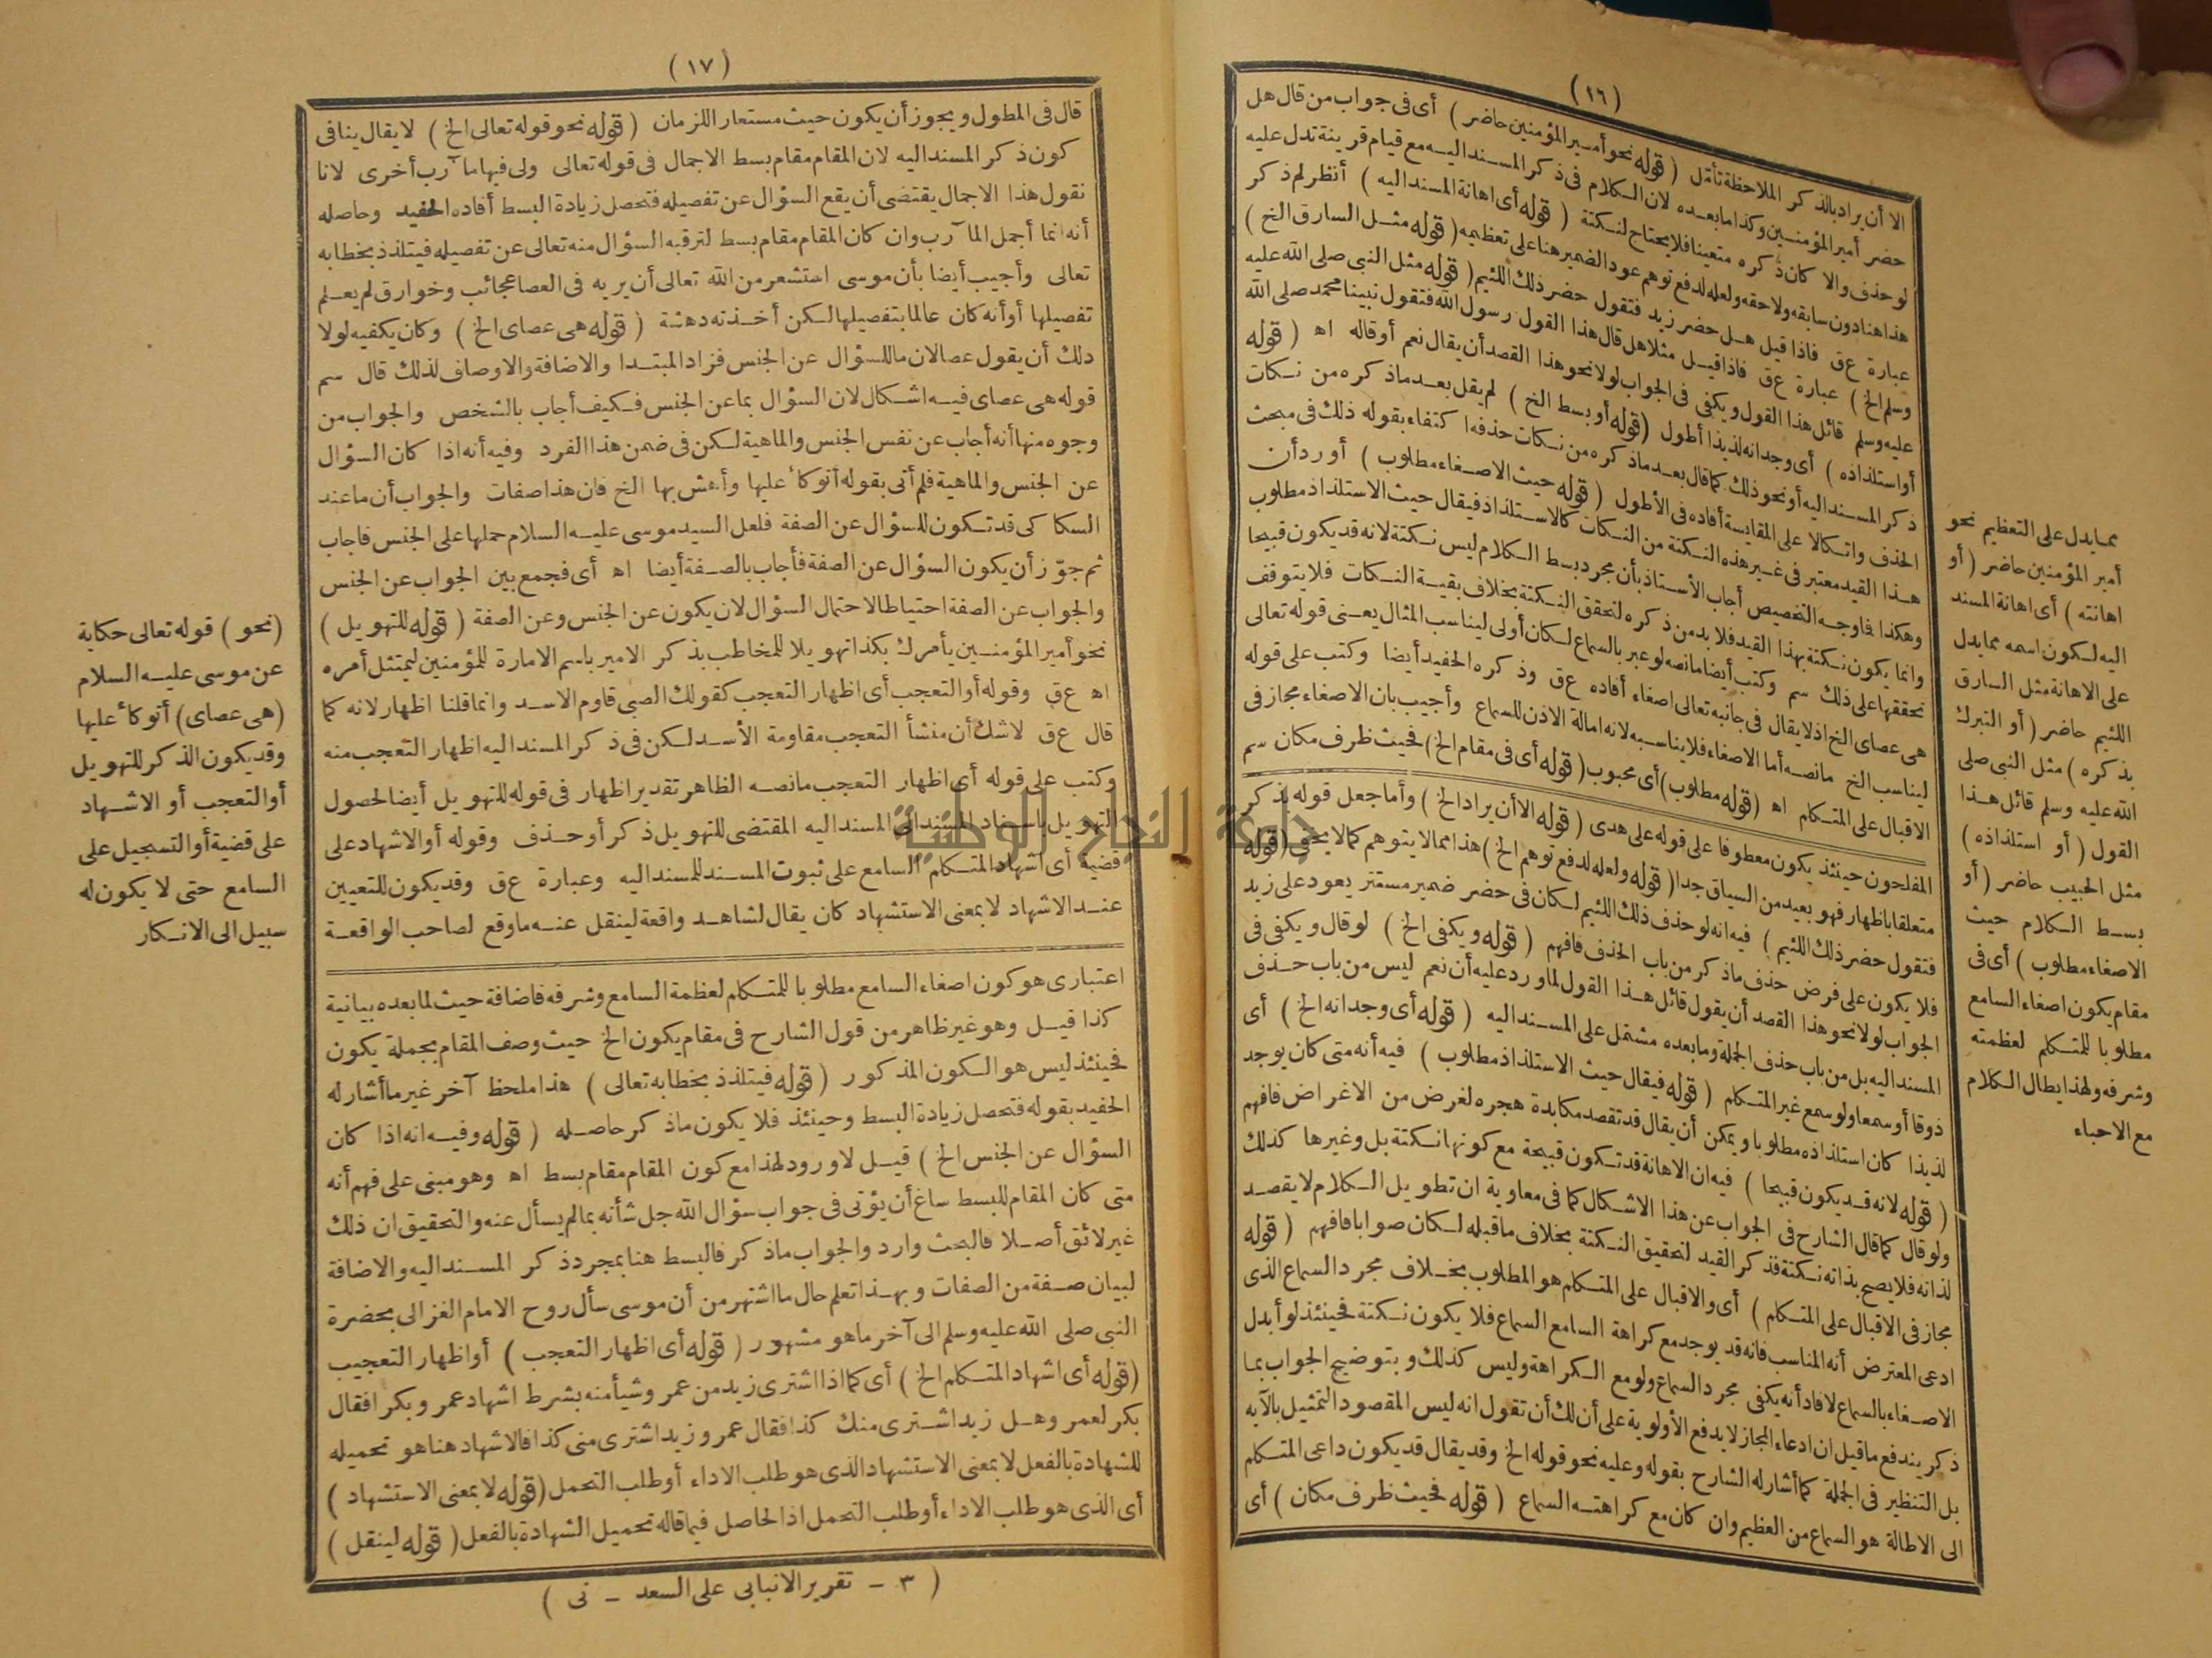 (١٦)
الا أن يراد بالذكر الملاحظة تأمل (قوله نحو أمير المؤمنين حاضر) أى فى جواب من قال هل
حضر أمير المؤمنين وكذا ما بعده لان الكلام فى ذكر المسند اليه مع قيام قرينة تدل عليه
لو حذف والا كان ذكره متعينا فلا يحتاج لنكتة (قوله أى اهانة المسند اليه) أنظر لم ذكر
هذا هنا دون سابقه ولاحقه ولعله لدفع توهم عود الضمير هنا على تعظيمه (قوله مثل السارق الخ)
عبارة عق فاذا قيل هل حضر زيد فتقول حضر ذلك اللئيم (قوله مثل النبى صلى الله عليه
وسلم الخ) عبارة عق فاذا قيل مثلا هل قال هذا القول رسول الله فتقول نبينا محمد صلى الله
عليه وسلم قائل هذا القول ويكفى فى الجواب لولا نحو هذا القصد أن يقال نعم أو قاله اه (قوله
أو استلذاذه) أى وجدانه لذيذا أطول (قوله أو بسط الخ) لم يقل بعد ما ذكره من نكات
ذكر المسند اليه أو نحو ذلك كما قال بعد ما ذكره من نكات حذفه اكتفاء بقوله ذلك فى مبحث
الحذف واتكالا على المقايسة أفاده فى الأطول (قوله حيث الاصغاء مطلوب) أورد أن
هذا القيد معتبر فى غير هذه النكتة من النكات كالاستلذاذ فيقال حيث الاستلذاذ مطلوب
وهكذا فما وجه التخصيص أجاب الأستاذ بأن مجرد بسط الكلام ليس نكتة لانه قد يكون قبيحا
وانما يكون نكتة بهذا القيد فلا بد من ذكره لتحقق النكتة بخلاف بقية النكات فلا يتوقف
تحققها على ذلك سم وكتب أيضا ما نصه لو عبر بالسماع لكان أولى ليناسب المثال يعنى قوله تعالى
هى عصاى الخ اذ لا يقال فى جانبه تعالى اصغاء أفاده عق وذكره الحفيد أيضا وكتب على قوله
ليناسب الخ ما نصه أما الاصغاء فلا يناسبه لانه امالة الاذن للسماع وأجيب بان الاصغاء مجاز فى
الاقبال على المتكلم اه (قوله مطلوب) أى محبوب (قوله أى فى مقام الخ) فحيث ظرف مكان سم
المفلحون حينئذ يكون معطوفا على قوله على هدى (قوله الا أن يراد الخ) وأما جعل قوله بذكر
متعلقا باظهار فهو بعيد من السياق جدا (قوله ولعله لدفع توهم الخ) هذا مما لا يتوهم كما لا يخفى (قوله
فتقول حضر ذلك اللئيم) فيه انه لو حذف ذلك اللئيم لكان فى حضر ضمير مستتر يعود على زيد
فلا يكون على فرض حذف ما ذكر من باب الحذف فافهم (قوله ويكفى الخ) لو قال ويكفى فى
الجواب لولا نحو هذا القصد أن يقول قائل هذا القول لما ورد عليه أن نعم ليس من باب حذف
المسند اليه بل من باب حذف الجملة وما بعده مشتمل على المسند اليه (قوله أى وجدانه الخ) أى
ذوقا أو سمعا ولو سمع غير المتكلم (قوله فيقال حيث الاستلذاذ مطلوب) فيه أنه متى كان يوجد
لذيذا كان استلذاذه مطلوبا ويمكن أن يقال قد تقصد مكابدة هجره لغرض من الاغراض فافهم
(قوله لانه قد يكون قبيحا) فيه ان الاهانة قد تكون قبيحة مع كونها نكتة بل وغيرها كذلك
ولو قال كما قال الشارح فى الجواب عن هذا الاشكال كما فى معاوية ان تطويل الكلام لا يقصد
لذاته فلا يصح بذاته نكتة فذكر القيد لتحقيق النكتة بخلاف ما قبله لكان صوابا فافهم (قوله
مجاز فى الاقبال على المتكلم) أى والاقبال على المتكلم هو المطلوب بخلاف مجرد السماع الذى
ادعى المعترض أنه المناسب فانه قد يوجد مع كراهة السامع السماع فلا يكون نكتة فحينئذ لو أبدل
الاصغاء بالسماع لافاد أنه يكفى مجرد السماع ولو مع الكراهة وليس كذلك وبتوضيح الجواب بما
ذكر يندفع ما قيل ان ادعاء المجاز لا يدفع الأولوية على أن لك أن تقول انه ليس المقصود التمثيل بالآية
بل التنظير فى الجملة كما أشار له الشارح بقوله وعليه نحو قوله الخ وقد يقال قد يكون داعى المتكلم
الى الاطالة هو السماع من العظيم وان كان مع كراهته السماع (قوله فحيث ظرف مكان) أى
مما يدل على التعظيم نحو
أمير المؤمنين حاضر (أو
اهانته) أى اهانة المسند
اليه لكون اسمه مما يدل
على الاهانة مثل السارق
اللئيم حاضر (أو التبرك
بذكره) مثل النبى صلى
الله عليه وسلم قائل هذا
القول (أو استلذاذه)
مثل الحبيب حاضر (أو
بسط الكلام حيث
الاصغاء مطلوب) أى فى
مقام يكون اصغاء السامع
مطلوبا للمتكلم لعظمته
وشرفه ولهذا يطال الكلام
مع الاحباء
(١٧)
قال فى المطول ويجوز أن يكون حيث مستعار اللزمان (قوله نحو قوله تعالى الخ) لا يقال ينافى
كون ذكر المسند اليه لان المقام مقام بسط الاجمال فى قوله تعالى ولى فيها مآرب أخرى لانا
نقول هذا الاجمال يقتضى أن يقع السؤال عن تفصيله فتحصل زيادة البسط أفاده الحفيد وحاصله
أنه انما أجمل المآرب وان كان المقام مقام بسط لترقبه السؤال منه تعالى عن تفصيله فيتلذذ بخطابه
تعالى وأجيب أيضا بأن موسى استشعر من الله تعالى أن يريه فى العصا عجائب وخوارق لم يعلم
تفصيلها أو أنه كان عالما بتفصيلها لكن أخذته دهشة (قوله هى عصاى الخ) وكان يكفيه لولا
ذلك أن يقول عصا لان ما للسؤال عن الجنس فزاد المبتدا والاضافة والاوصاف لذلك قال سم
قوله هى عصاى فيه اشكال لان السؤال بما عن الجنس فكيف أجاب بالشخص والجواب من
وجوه منها أنه أجاب عن نفس الجنس والماهية لكن فى ضمن هذا الفرد وفيه أنه اذا كان السؤال
عن الجنس والماهية فلم أتى بقوله أتوكأ عليها وأهش بها الخ فان هذا صفات والجواب أن ما عند
السكاكى قد تكون للسؤال عن الصفة فلعل السيد موسى عليه السلام حملها على الجنس فاجاب
ثم جوّز أن يكون السؤال عن الصفة فأجاب بالصفة أيضا اه أى فجمع بين الجواب عن الجنس
والجواب عن الصفة احتياطا لاحتمال السؤال لان يكون عن الجنس وعن الصفة (قوله للتهويل)
نحو أمير المؤمنين يأمرك بكذا تهويلا للمخاطب بذكر الامير باسم الامارة للمؤمنين ليمتثل أمره
اه عق وقوله أو التعجب أى اظهار التعجب كقولك الصبى قاوم الاسد وانما قلنا اظهار لانه كما
قال عق لا شك أن منشأ التعجب مقاومة الأسد لكن فى ذكر المسند اليه اظهار التعجب منه
وكتب على قوله أى اظهار التعجب ما نصه الظاهر تقدير اظهار فى قوله للتهويل أيضا لحصول
التهويل باسناد المسند الى المسند اليه المقتضى للتهويل ذكر أو حذف وقوله أو الاشهاد على
قضية أى اشهاد المتكلم السامع على ثبوت المسند للمسند اليه وعبارة عق وقد يكون للتعيين
عند الاشهاد لا بمعنى الاستشهاد كان يقال لشاهد واقعة لينقل عنه ما وقع لصاحب الواقعة
اعتبارى هو كون اصغاء السامع مطلوبا للمتكلم لعظمة السامع وشرفه فاضافة حيث لما بعده بيانية
كذا قيل وهو غير ظاهر من قول الشارح فى مقام يكون الخ حيث وصف المقام بجملة يكون
فحينئذ ليس هو الكون المذكور (قوله فيتلذذ بخطابه تعالى) هذا ملحظ آخر غير ما أشار له
الحفيد بقوله فتحصل زيادة البسط وحينئذ فلا يكون ما ذكر حاصله (قوله وفيه انه اذا كان
السؤال عن الجنس الخ) قيل لا ورود لهذا مع كون المقام مقام بسط اه وهو مبنى على فهم أنه
متى كان المقام للبسط ساغ أن يؤتى فى جواب سؤال الله جل شأنه بما لم يسأل عنه والتحقيق ان ذلك
غير لائق أصلا فالبحث وارد والجواب ما ذكر فالبسط هنا بمجرد ذكر المسند اليه والاضافة
لبيان صفة من الصفات وبهذا تعلم حال ما اشتهر من أن موسى سأل روح الامام الغزالى بمحضرة
النبى صلى الله عليه وسلم الى آخر ما هو مشهور (قوله أى اظهار التعجب) أو اظهار التعجيب
(قوله أى اشهاد المتكلم الخ) أى كما اذا اشترى زيد من عمر وشيأ منه بشرط اشهاد عمر وبكرا فقال
بكر لعمر وهل زيد اشترى منك كذا فقال عمر وزيد اشترى منى كذا فالاشهاد هنا هو تحميله
للشهادة بالفعل لا بمعنى الاستشهاد الذى هو طلب الاداء أو طلب التحمل (قوله لا بمعنى الاستشهاد)
أى الذى هو طلب الاداء أو طلب التحمل اذ الحاصل فيما قاله تحميل الشهادة بالفعل (قوله لينقل)
(نحو) قوله تعالى حكاية
عن موسى عليه السلام
(هى عصاى) أتوكأ عليها
وقد يكون الذكر للتهويل
أو التعجب أو الاشهاد
على قضية أو التسجيل على
السامع حتى لا يكون له
سبيل الى الانكار
(٣ - تقرير الانبابى على السعد - نى)
جامعة النجاح الوطنية